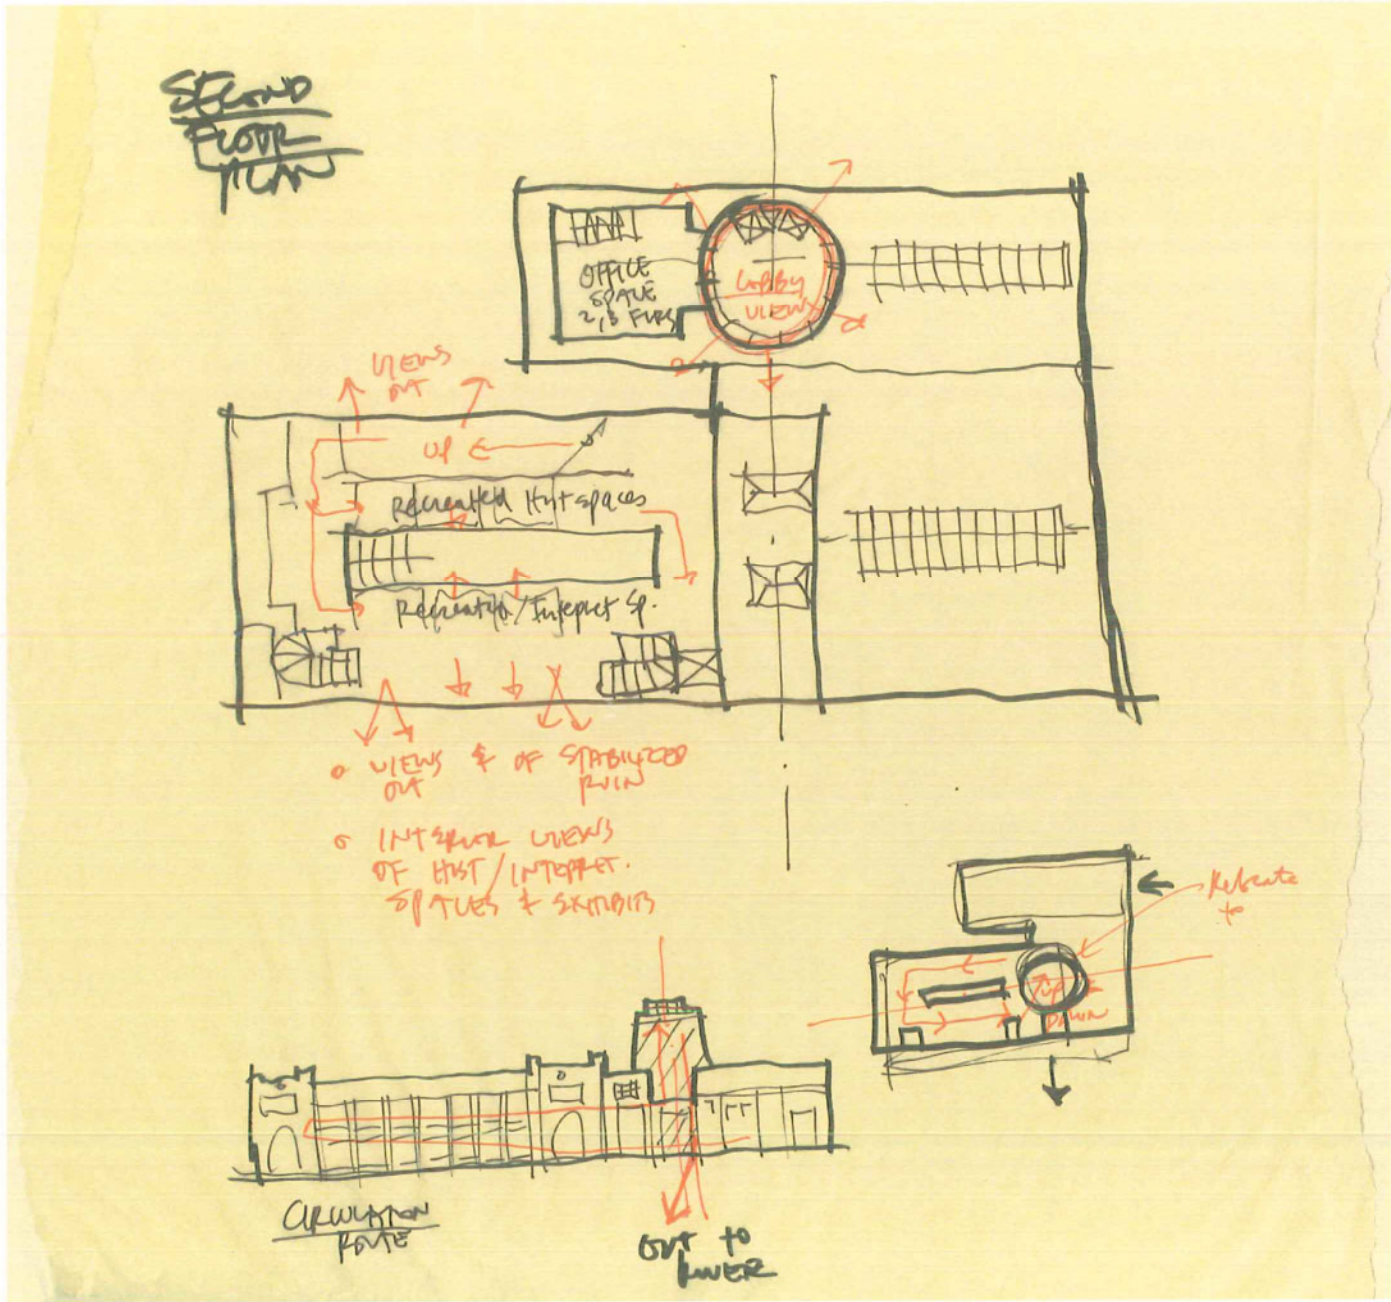 SECOND
FLOOR
PLAN
OFFICE
SPACE
2,3 FLRS
LOBBY
VIEWS
VIEWS
OUT
UP
Recreated Hist spaces
Recreation/Interpret Sp.
o VIEWS & OF STABILIZED
OUT RUIN
o INTERIOR VIEWS
OF HIST/INTERPRET.
SPACES & EXHIBITS
to
UP &
DOWN
CIRCULATION
ROUTE
OUT TO
RIVER